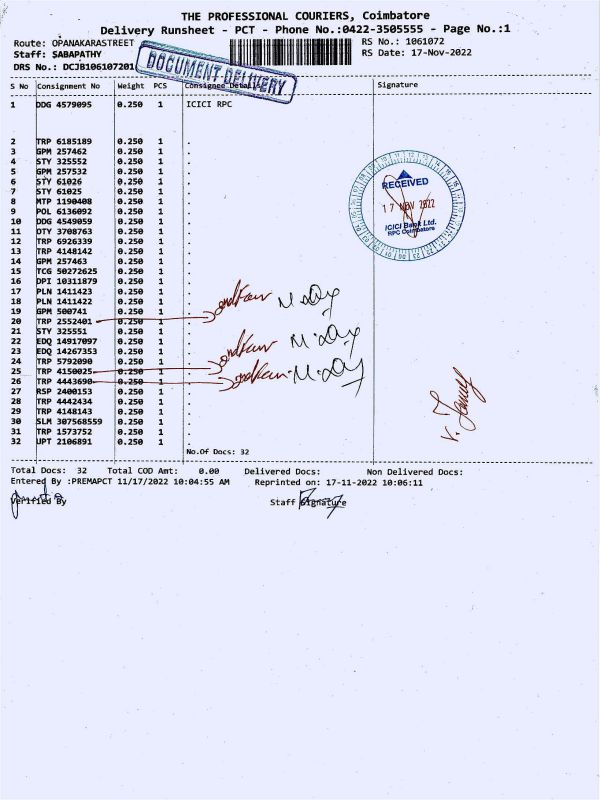 THE PROFESSIONAL COURIERS, Coimbatore
Delivery Runsheet - PCT - Phone No.:0422-3505555 - Page No.:1
Route: OPANAKARASTREET RS No.: 1061072
Staff: SABAPATHY RS Date: 17-Nov-2022
DRS No.: DCJB106107201
DOCUMENT DELIVERY
S No Consignment No Weight PCS Consignee Details Signature
1 DDG 4579095 0.250 1 ICICI RPC
2 TRP 6185189 0.250 1 .
3 GPM 257462 0.250 1 .
4 STY 325552 0.250 1 .
5 GPM 257532 0.250 1 .
6 STY 61026 0.250 1 .
7 STY 61025 0.250 1 .
8 MTP 1190408 0.250 1 .
9 POL 6136092 0.250 1 .
10 DDG 4549059 0.250 1 .
11 DTY 3708763 0.250 1 .
12 TRP 6926339 0.250 1 .
13 TRP 4148142 0.250 1 .
14 GPM 257463 0.250 1 .
15 TCG 50272625 0.250 1 .
16 DPI 10311879 0.250 1 .
17 PLN 1411423 0.250 1 .
18 PLN 1411422 0.250 1 .
19 GPM 500741 0.250 1 .
20 TRP 2552401 0.250 1 .
21 STY 325551 0.250 1 .
22 EDQ 14917097 0.250 1 .
23 EDQ 14267353 0.250 1 .
24 TRP 5792090 0.250 1 .
25 TRP 4150025 0.250 1 .
26 TRP 4443690 0.250 1 .
27 RSP 2400153 0.250 1 .
28 TRP 4442434 0.250 1 .
29 TRP 4148143 0.250 1 .
30 SLM 307568559 0.250 1 .
31 TRP 1573752 0.250 1 .
32 UPT 2106891 0.250 1 .
RECEIVED
17 NOV 2022
ICICI Bank Ltd.
RPC Coimbatore
No.Of Docs: 32
Total Docs: 32 Total COD Amt: 0.00 Delivered Docs: Non Delivered Docs:
Entered By :PREMAPCT 11/17/2022 10:04:55 AM Reprinted on: 17-11-2022 10:06:11
Verified By Staff Signature